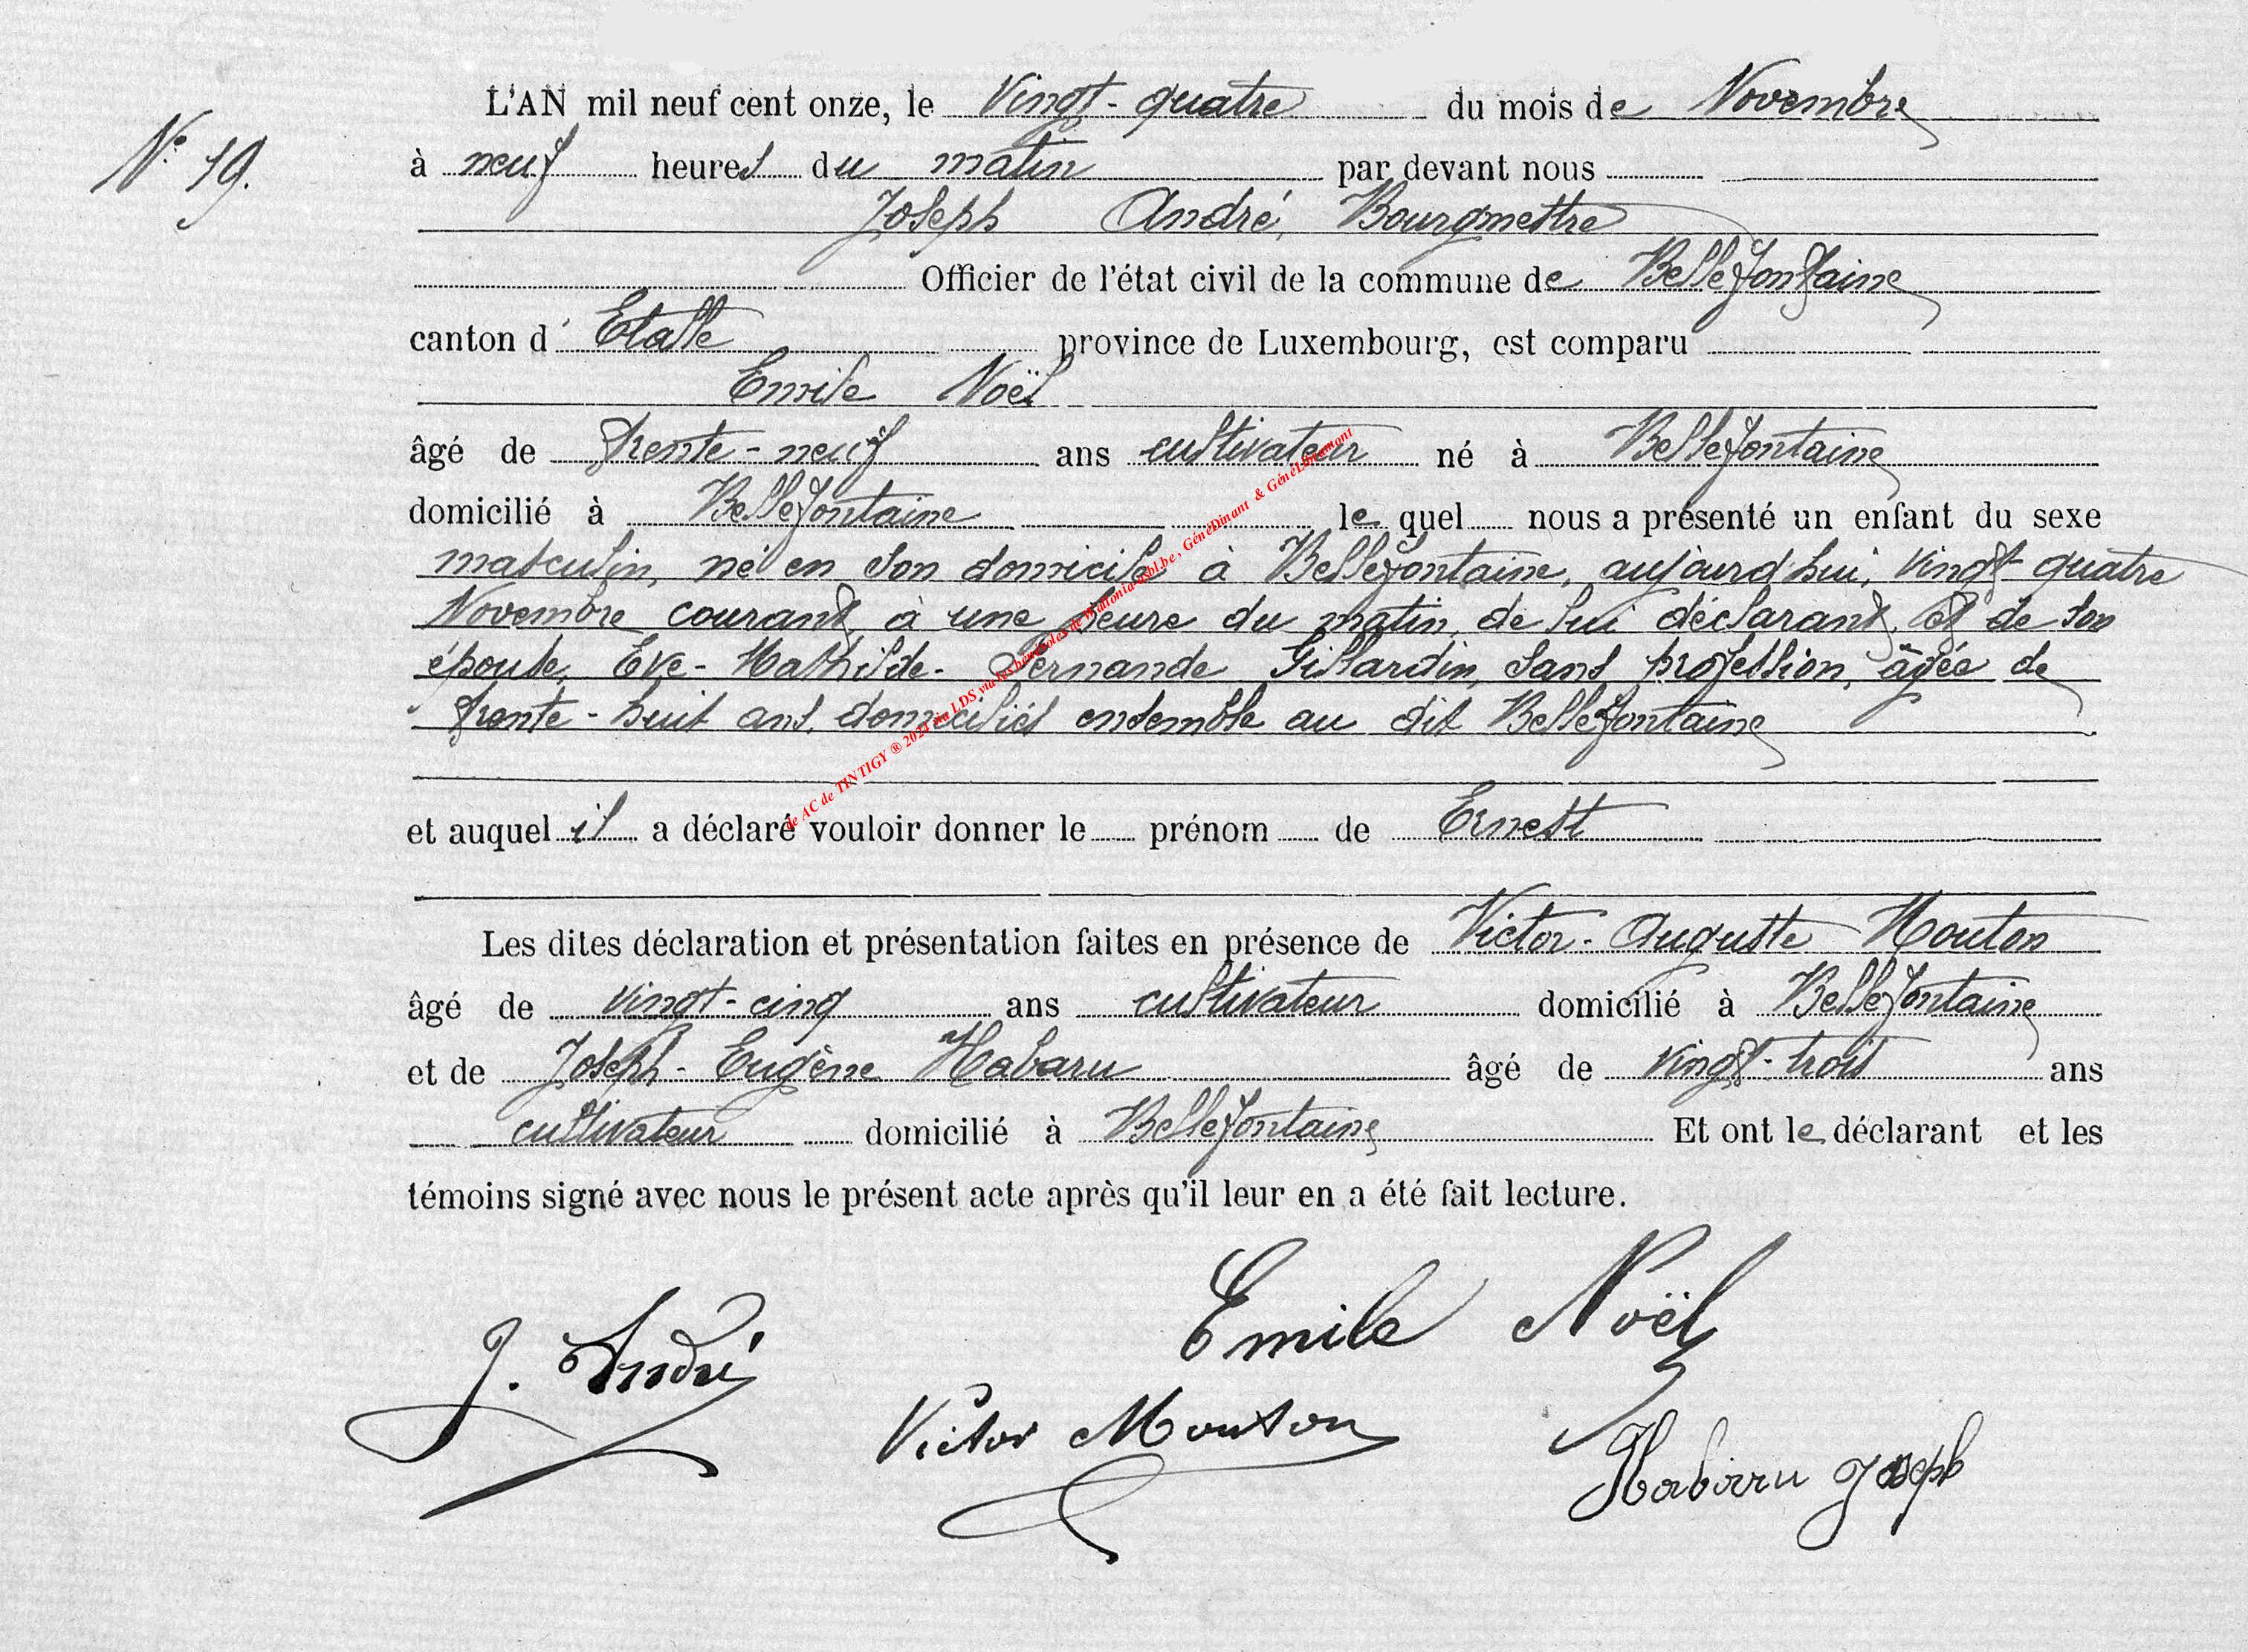 L'AN mil neuf cent onze, le Vingt-quatre du mois de Novembre
N° 19.
à neuf heures du matin par devant nous
Joseph André, Bourgmestre
Officier de l'état civil de la commune de Bellefontaine
canton d' Etalle province de Luxembourg, est comparu
Emile Noël
âgé de trente-neuf ans cultivateur né à Bellefontaine
domicilié à Bellefontaine le quel nous a présenté un enfant du sexe
masculin, né en son domicile à Bellefontaine, aujourd'hui, vingt-quatre
Novembre courant à une heure du matin, de lui déclarant, et de son
épouse, Eve-Mathilde-Fernande Gillardin, sans profession, âgée de
trente-huit ans, domiciliés ensemble au dit Bellefontaine
et auquel il a déclaré vouloir donner le prénom de Ernest
Les dites déclaration et présentation faites en présence de Victor-Auguste Mouton
âgé de vingt-cinq ans cultivateur domicilié à Bellefontaine
et de Joseph-Eugène Habaru âgé de vingt-trois ans
cultivateur domicilié à Bellefontaine Et ont le déclarant et les
témoins signé avec nous le présent acte après qu'il leur en a été fait lecture.
Emile Noël
J. André
Victor Mouton
Habaru Joseph
de AC de TINTIGY ® 2024 via LDS via les bénévoles de Wallonia asbl.be, GénéDinant &